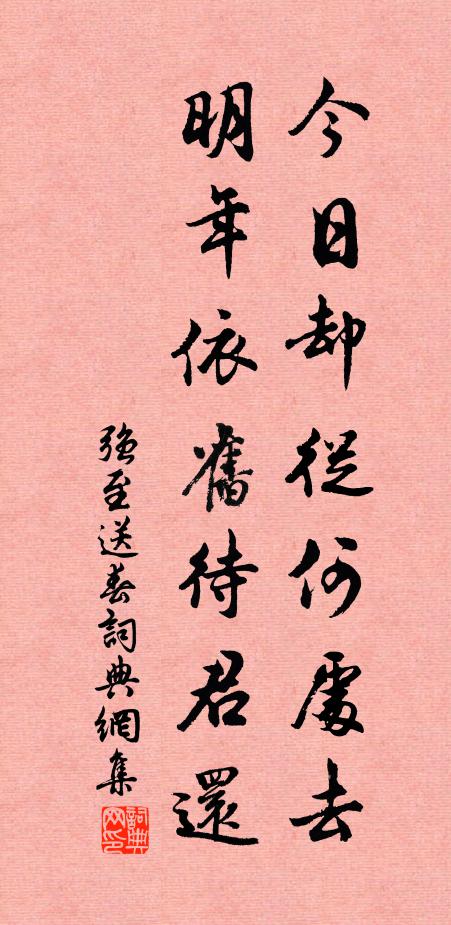 今日却從何處去
明年依舊待君還
強至送春詞典網集
詞典网印